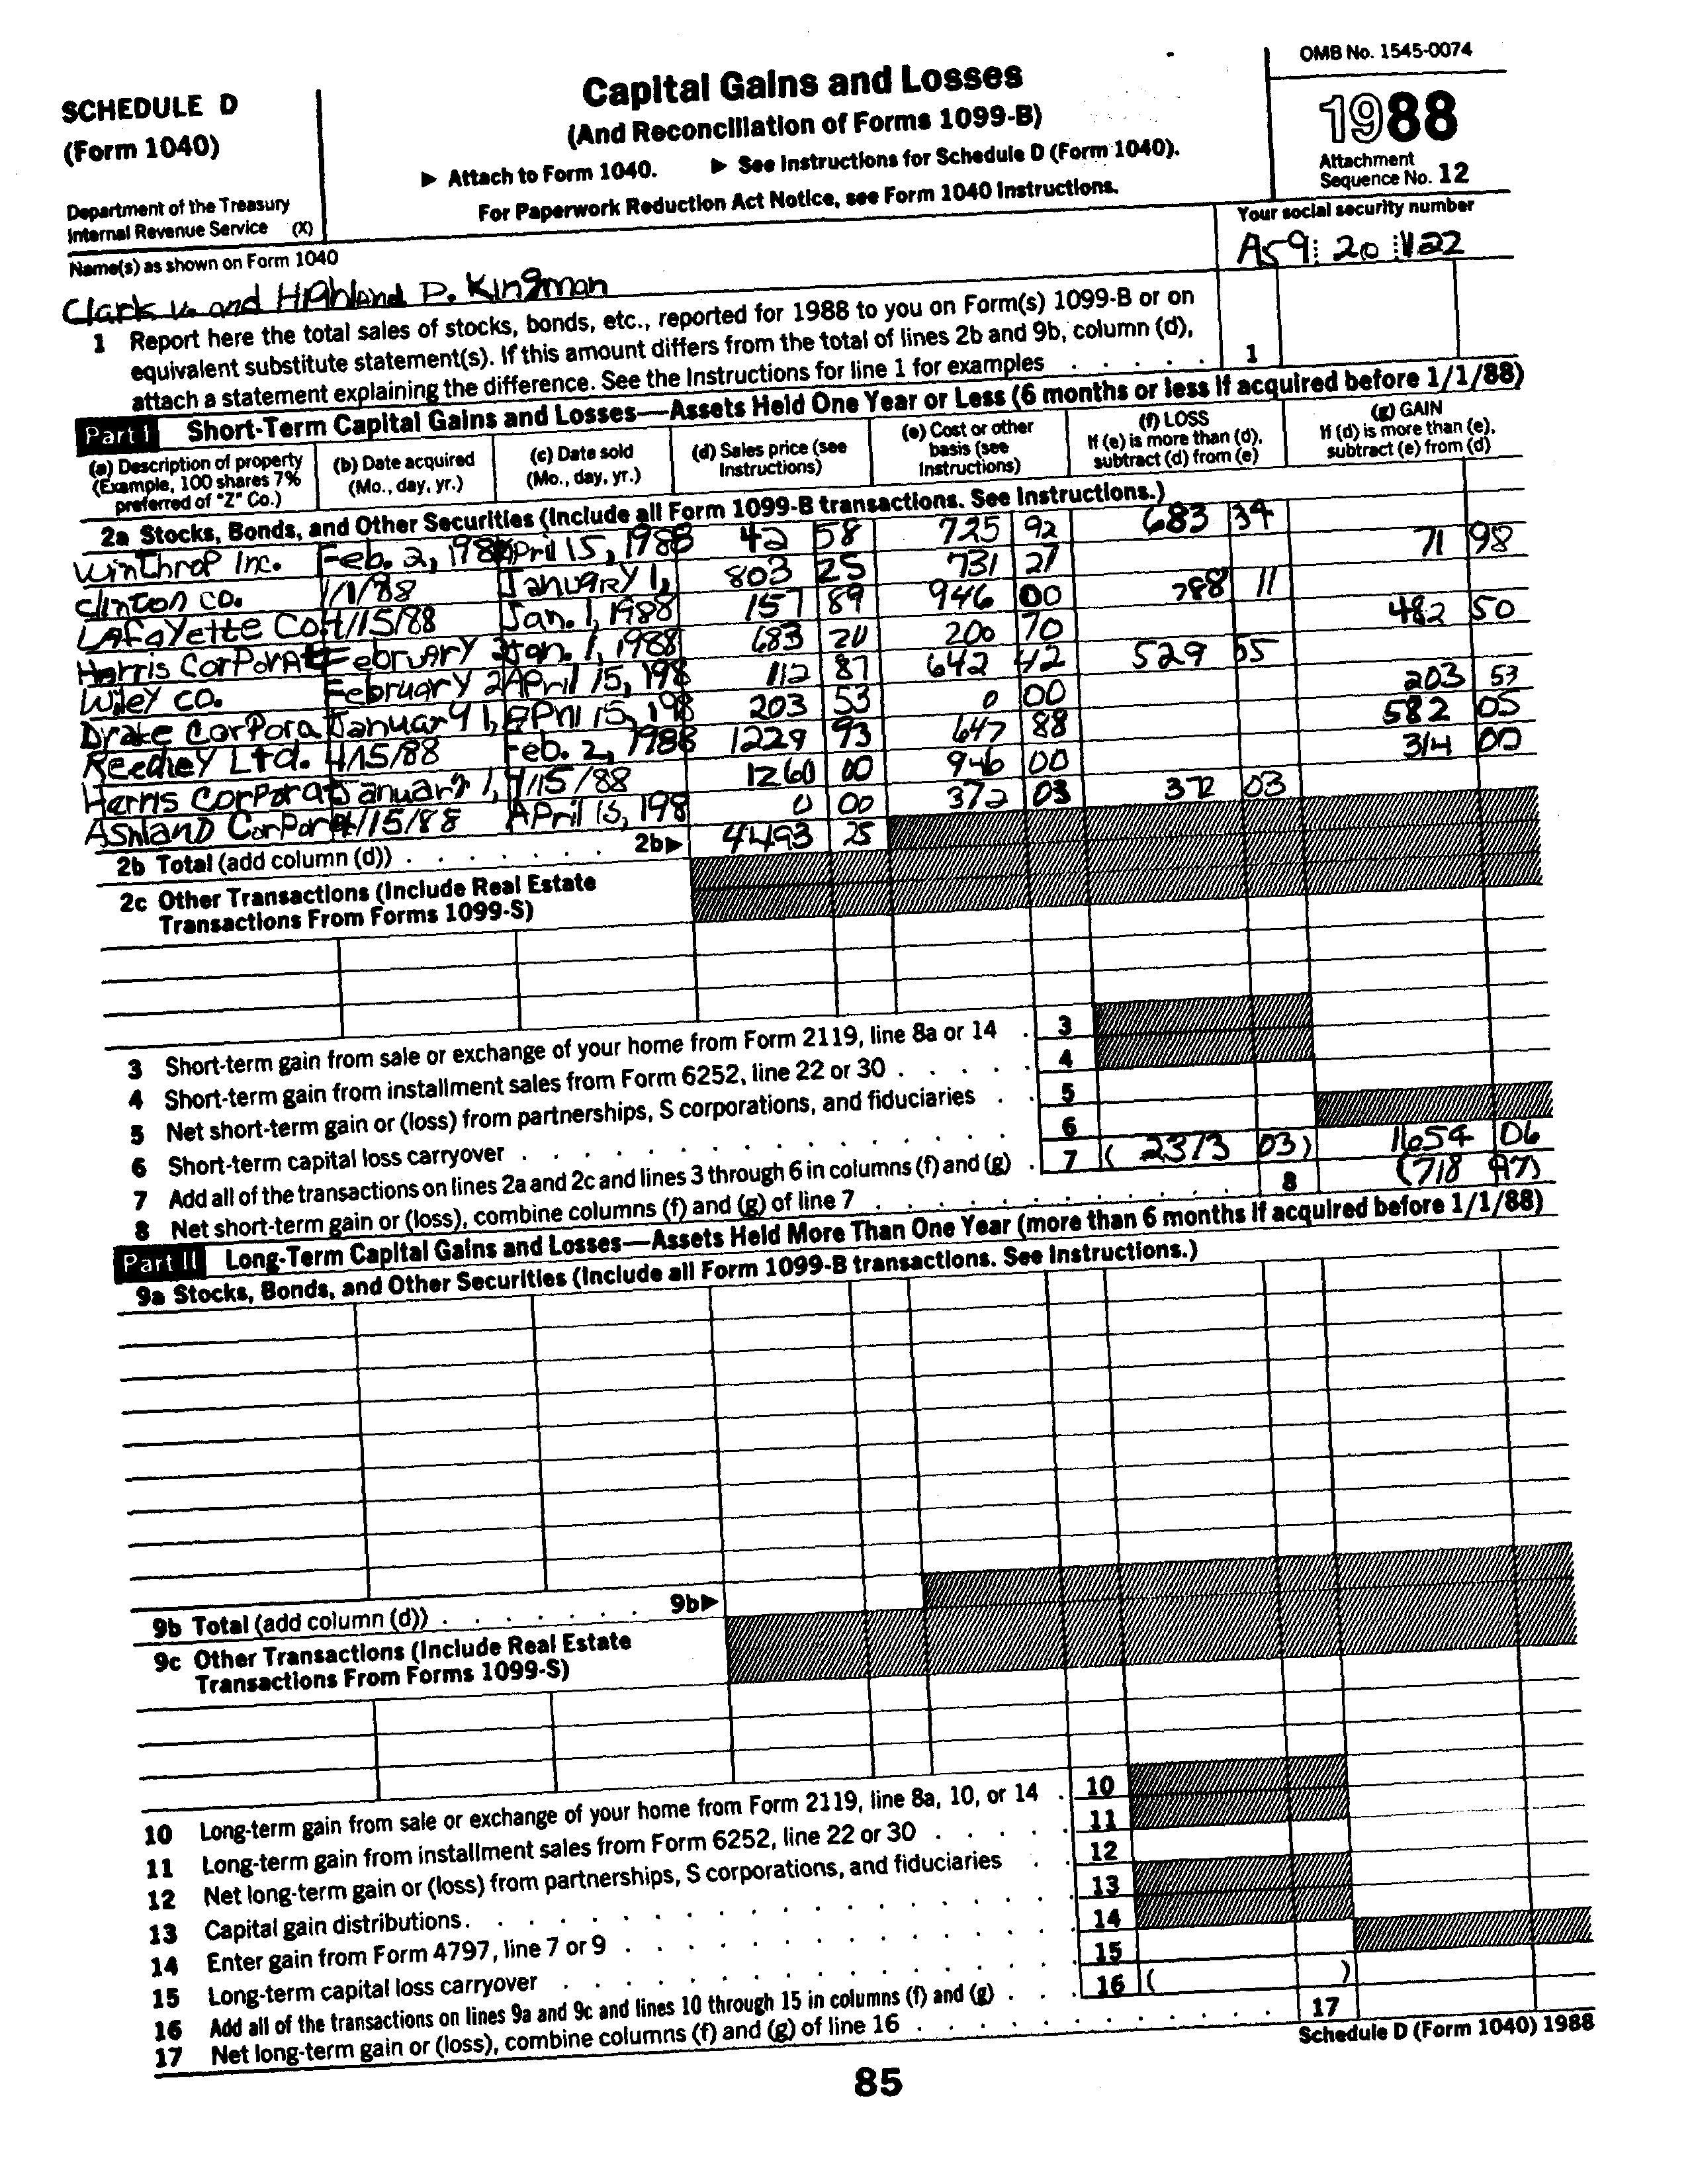 OMB No. 1545-0074
SCHEDULE D
(Form 1040)
Department of the Treasury
Internal Revenue Service (X)
Capital Gains and Losses
(And Reconciliation of Forms 1099-B)
▶ Attach to Form 1040. ▶ See Instructions for Schedule D (Form 1040).
For Paperwork Reduction Act Notice, see Form 1040 Instructions.
1988
Attachment
Sequence No. 12
Name(s) as shown on Form 1040
Your social security number
Clark V. and Highland P. Kingman
A59 20 1122
1 Report here the total sales of stocks, bonds, etc., reported for 1988 to you on Form(s) 1099-B or on
equivalent substitute statement(s). If this amount differs from the total of lines 2b and 9b, column (d),
attach a statement explaining the difference. See the Instructions for line 1 for examples . . . . . 1
Part I Short-Term Capital Gains and Losses—Assets Held One Year or Less (6 months or less if acquired before 1/1/88)
(a) Description of property
(Example, 100 shares 7%
preferred of "Z" Co.)
(b) Date acquired
(Mo., day, yr.)
(c) Date sold
(Mo., day, yr.)
(d) Sales price (see
Instructions)
(e) Cost or other
basis (see
Instructions)
(f) LOSS
If (e) is more than (d),
subtract (d) from (e)
(g) GAIN
If (d) is more than (e),
subtract (e) from (d)
2a Stocks, Bonds, and Other Securities (Include all Form 1099-B transactions. See Instructions.)
Winthrop Inc. Feb. 2, 198 April 15, 1988 42 58 725 92 683 34
Clinton Co. 1/1/88 January 1, 803 25 731 27 71 98
LaFayette Co. 4/15/88 Jan. 1, 1988 157 89 946 00 788 11
Harris Corporat February 2 Jan. 1, 1988 683 20 200 70 482 50
Wiley Co. February 2 April 15, 198 112 87 642 42 529 55
Drake Corpora January 1, April 15, 198 203 53 0 00 203 53
Reedley Ltd. 4/15/88 Feb. 2, 1988 1229 93 647 88 582 05
Harris Corporat January 1, 4/15/88 1260 00 946 00 314 00
Ashland Corpor 4/15/88 April 15, 198 0 00 372 03 372 03
2b Total (add column (d)) . . . . . . . 2b▶ 4493 25
2c Other Transactions (Include Real Estate
Transactions From Forms 1099-S)
3 Short-term gain from sale or exchange of your home from Form 2119, line 8a or 14 . 3
4 Short-term gain from installment sales from Form 6252, line 22 or 30 . . . . . 4
5 Net short-term gain or (loss) from partnerships, S corporations, and fiduciaries . . 5
6 Short-term capital loss carryover . . . . . . . . . . . . . 6
7 Add all of the transactions on lines 2a and 2c and lines 3 through 6 in columns (f) and (g) . 7 ( 2373 03 ) 1654 06
8 Net short-term gain or (loss), combine columns (f) and (g) of line 7 . . . . . . . . . . . 8 (718 97)
Part II Long-Term Capital Gains and Losses—Assets Held More Than One Year (more than 6 months if acquired before 1/1/88)
9a Stocks, Bonds, and Other Securities (Include all Form 1099-B transactions. See Instructions.)
9b Total (add column (d)) . . . . . . . 9b▶
9c Other Transactions (Include Real Estate
Transactions From Forms 1099-S)
10 Long-term gain from sale or exchange of your home from Form 2119, line 8a, 10, or 14 . 10
11 Long-term gain from installment sales from Form 6252, line 22 or 30 . . . . . 11
12 Net long-term gain or (loss) from partnerships, S corporations, and fiduciaries . . 12
13 Capital gain distributions . . . . . . . . . . . . . . . 13
14 Enter gain from Form 4797, line 7 or 9 . . . . . . . . . . . 14
15 Long-term capital loss carryover . . . . . . . . . . . . . 15
16 Add all of the transactions on lines 9a and 9c and lines 10 through 15 in columns (f) and (g) . . . 16 ( )
17 Net long-term gain or (loss), combine columns (f) and (g) of line 16 . . . . . . . . . . . 17
Schedule D (Form 1040) 1988
85